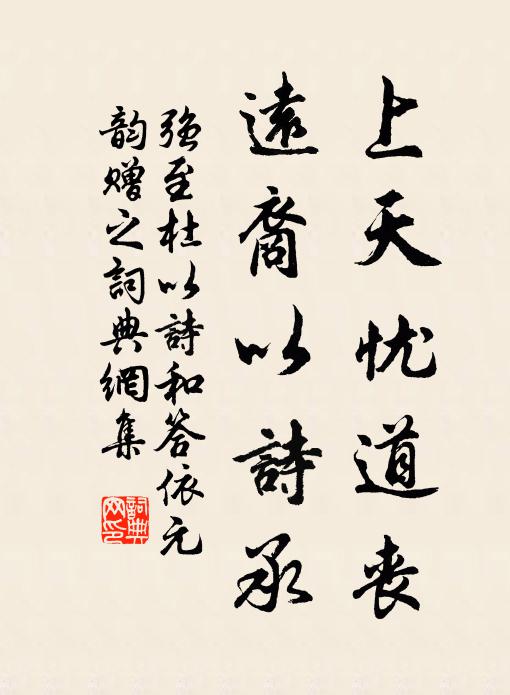 上天忧道丧
遠裔以詩承
强至杜以詩和答依元
韵赠之詞典網集
詞典网印